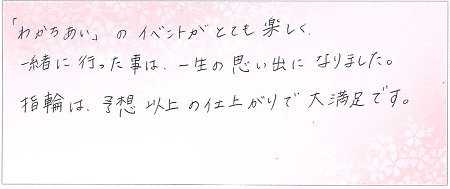 「わかちあい」のイベントがとても楽しく、
一緒に行った事は、一生の思い出になりました。
指輪は、予想以上の仕上がりで大満足です。